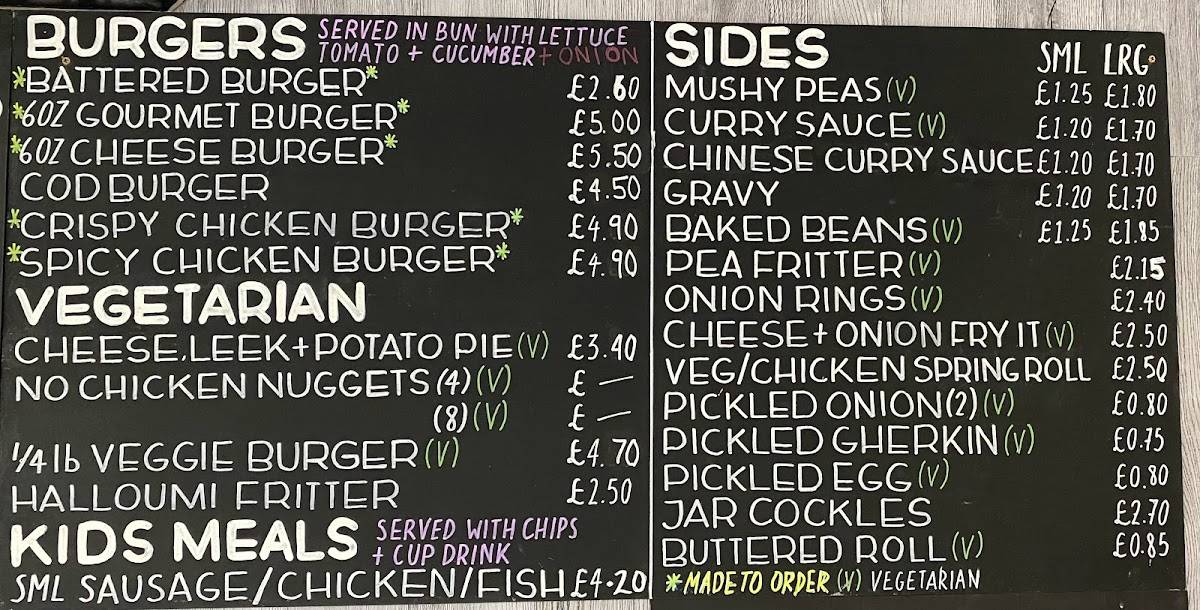 BURGERS SERVED IN BUN WITH LETTUCE
TOMATO + CUCUMBER + ONION
*BATTERED BURGER* £2.60
*6OZ GOURMET BURGER* £5.00
*6OZ CHEESE BURGER* £5.50
COD BURGER £4.50
*CRISPY CHICKEN BURGER* £4.90
*SPICY CHICKEN BURGER* £4.90
VEGETARIAN
CHEESE, LEEK + POTATO PIE (V) £3.40
NO CHICKEN NUGGETS (4) (V) £ —
(8) (V) £ —
1/4 lb VEGGIE BURGER (V) £4.70
HALLOUMI FRITTER £2.50
KIDS MEALS SERVED WITH CHIPS
+ CUP DRINK
SML SAUSAGE/CHICKEN/FISH £4.20
SIDES SML LRG
MUSHY PEAS (V) £1.25 £1.80
CURRY SAUCE (V) £1.20 £1.70
CHINESE CURRY SAUCE £1.20 £1.70
GRAVY £1.20 £1.70
BAKED BEANS (V) £1.25 £1.85
PEA FRITTER (V) £2.15
ONION RINGS (V) £2.40
CHEESE + ONION FRY IT (V) £2.50
VEG/CHICKEN SPRING ROLL £2.50
PICKLED ONION (2) (V) £0.80
PICKLED GHERKIN (V) £0.75
PICKLED EGG (V) £0.80
JAR COCKLES £2.70
BUTTERED ROLL (V) £0.85
*MADE TO ORDER (V) VEGETARIAN